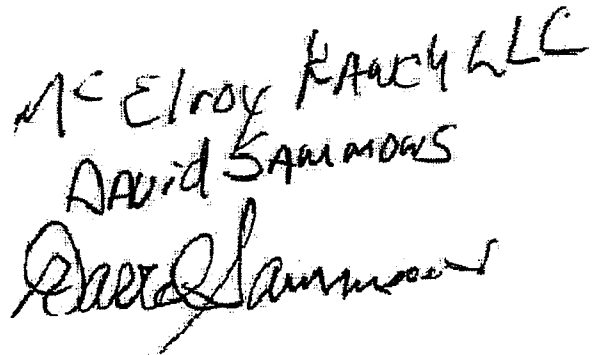 McElroy Ranch LLC
David Sammons
David Sammons